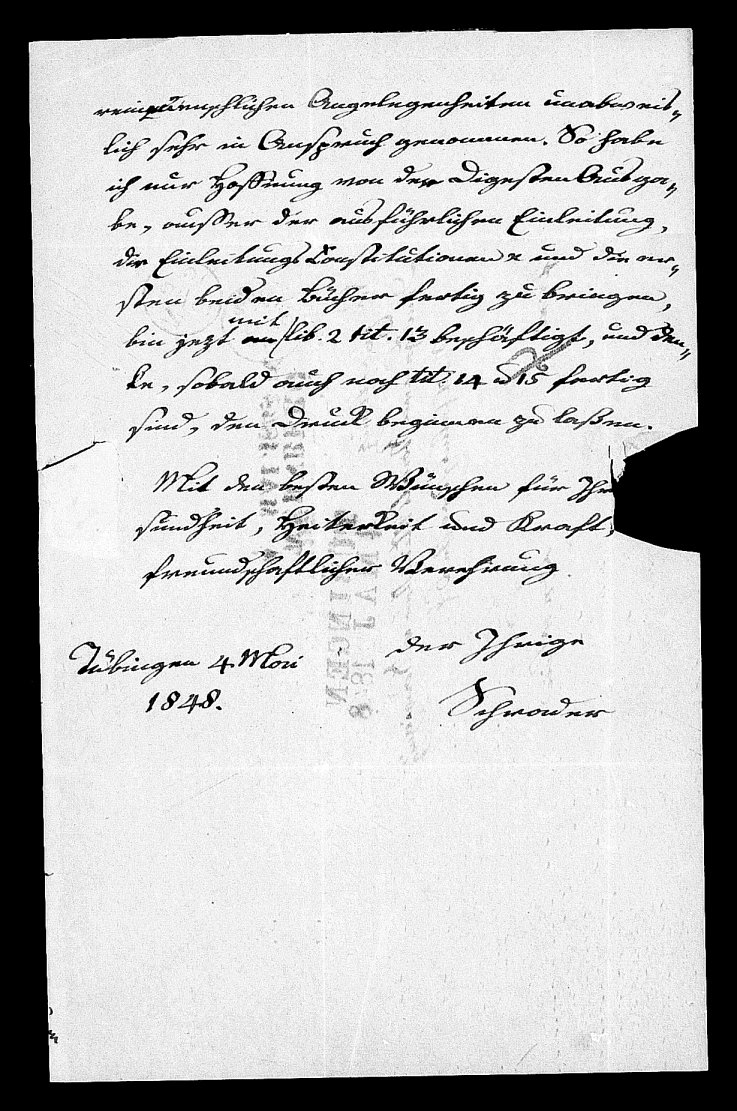 reinmenschlichen Angelegenheiten unabweis-
lich sehr in Anspruch genommen. So habe
ich nur Hoffnung von der Digesten Ausga-
be, ausser der ausführlichen Einleitung,
die Einleitungs Constitutionen und die er-
sten beiden Bücher fertig zu bringen,
bin jezt mit lib. 2 tit. 13 beschäftigt, und den-
ke, sobald auch noch tit. 14 u 15 fertig
sind, den Druck beginnen zu laßen.
Mit den besten Wünschen für Ihr
sundheit, Heiterkeit und Kraft,
freundschaftlicher Verehrung
der Ihrige
Tübingen 4 Mai
1848.
Schrader